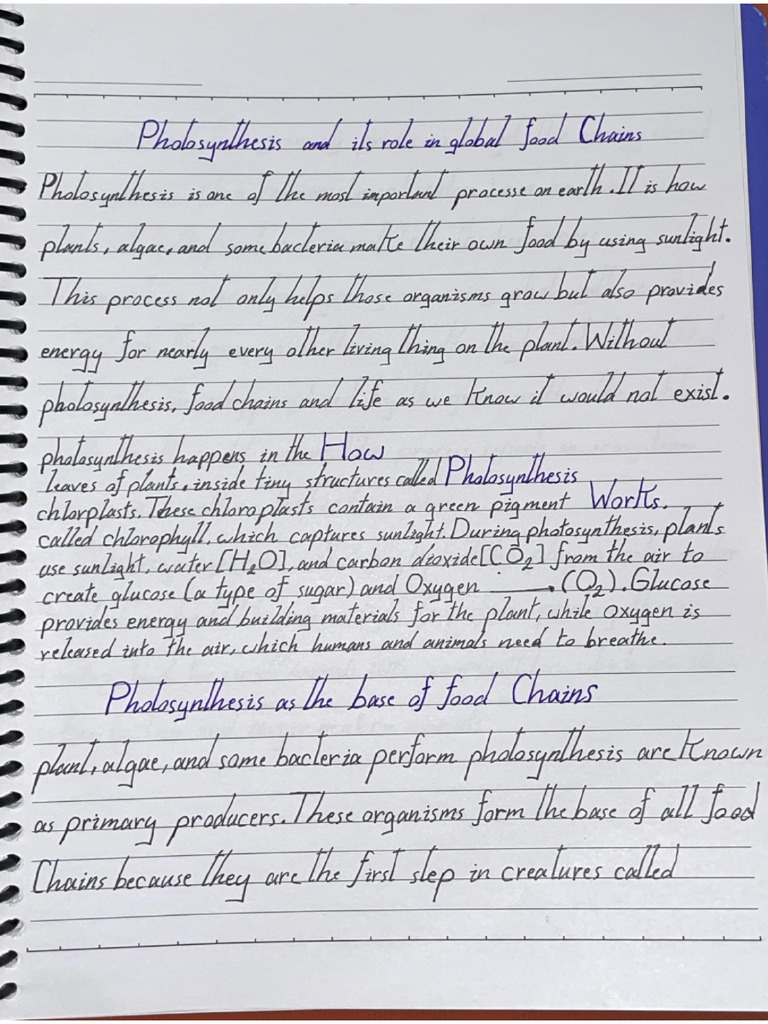 Photosynthesis and its role in global food Chains
Photosynthesis is one of the most important processe on earth. It is how
plants, algae, and some bacteria make their own food by using sunlight.
This process not only helps those organisms grow but also provides
energy for nearly every other living thing on the plant. Without
photosynthesis, food chains and life as we know it would not exist.
photosynthesis happens in the How
leaves of plants, inside tiny structures called Photosynthesis
chlorplasts. These chloroplasts contain a green pigment Works.
called chlorophyll, which captures sunlight. During photosynthesis, plants
use sunlight, water [H₂O], and carbon dioxide [CO₂] from the air to
create glucose (a type of sugar) and Oxygen (O₂). Glucose
provides energy and building materials for the plant, while oxygen is
released into the air, which humans and animals need to breathe.
Photosynthesis as the base of food Chains
plant, algae, and some bacteria perform photosynthesis are known
as primary producers. These organisms form the base of all food
Chains because they are the first step in creatures called